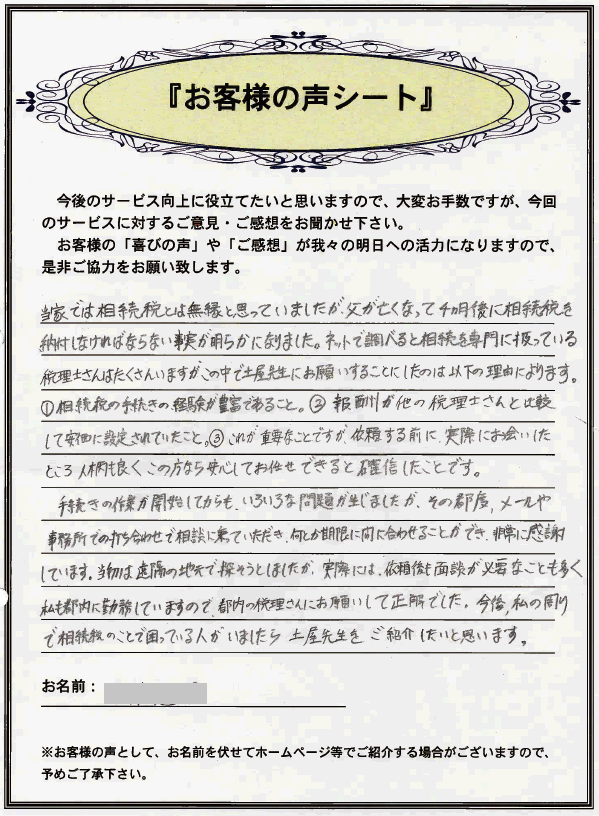 『お客様の声シート』
今後のサービス向上に役立てたいと思いますので、大変お手数ですが、今回
のサービスに対するご意見・ご感想をお聞かせ下さい。
お客様の「喜びの声」や「ご感想」が我々の明日への活力になりますので、
是非ご協力をお願い致します。
当家では相続税とは無縁と思っていましたが、父が亡くなって4ヵ月後に相続税を
納付しなければならない事実が明らかになりました。ネットで調べると相続を専門に扱っている
税理士さんはたくさんいますが、この中で土屋先生にお願いすることにしたのは以下の理由によります。
①相続税の手続きの経験が豊富であること。②報酬が他の税理士さんと比較
して安価に設定されていたこと。③これが重要なことですが、依頼する前に、実際にお会いした
ところ人柄も良くこの方なら安心してお任せできると確信したことです。
手続きの作業が開始してからも、いろいろな問題が生じましたが、その都度、メールや
事務所での打ち合わせで相談に乗っていただき、何とか期限に間に合わせることができ、非常に感謝
しています。当初は遠隔の地元で探そうとしましたが、実際には、依頼後も面談が必要なことも多く
私も都内に勤務していますので、都内の税理さんにお願いして正解でした。今後、私の周り
で相続税のことで困っている人がいましたら土屋先生をご紹介したいと思います。
お名前：
※お客様の声として、お名前を伏せてホームページ等でご紹介する場合がございますので、
予めご了承下さい。